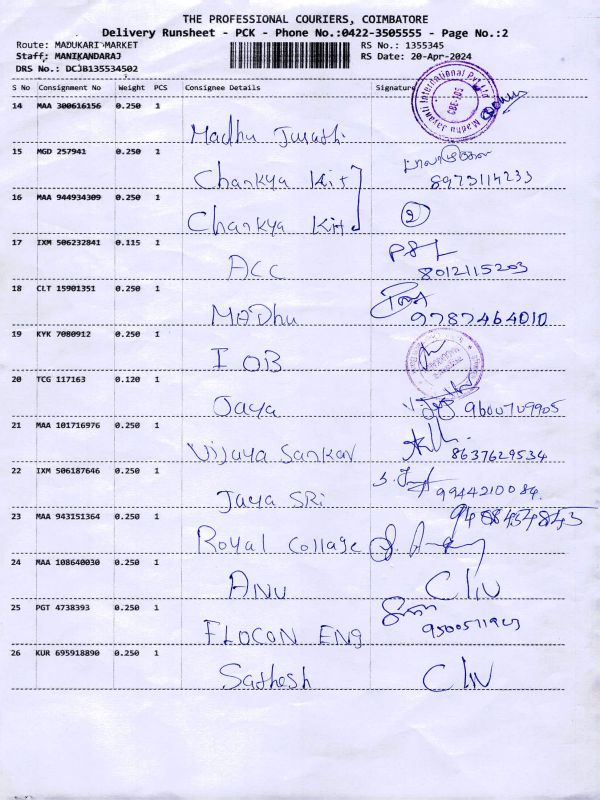 THE PROFESSIONAL COURIERS, COIMBATORE
Delivery Runsheet - PCK - Phone No.:0422-3505555 - Page No.:2
Route: MADUKARI MARKET RS No.: 1355345
Staff: MANIKANDARAJ RS Date: 20-Apr-2024
DRS No.: DCJB135534502
S No Consignment No Weight PCS Consignee Details Signature
14 MAA 300616156 0.250 1
Madhu
15 MGD 257941 0.250 1
Chankya Kit 8973114233
16 MAA 944934309 0.250 1
Chankya Kit 2
17 IXM 506232841 0.115 1
ACC 8012115203
18 CLT 15901351 0.250 1
MADhu 9787464010
19 KYK 7080912 0.250 1
IOB
20 TCG 117163 0.120 1
Jaya 9600709905
21 MAA 101716976 0.250 1
Vijaya Sankar 8637629534
22 IXM 506187646 0.250 1
Jaya SRi 9944210084.
23 MAA 943151364 0.250 1 9488454843
Royal Collage
24 MAA 108640030 0.250 1
ANU
25 PGT 4738393 0.250 1
FLOCON ENG
26 KUR 695918890 0.250 1
Sathesh